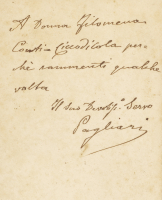 A Donna Filomena
Contin Ciccodicola per-
chè rammenti qualche
volta
Il suo Devot. Servo
Pagliari